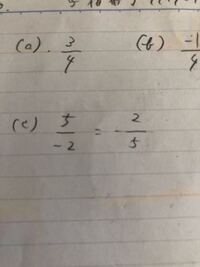 (a). 3/4 (b) -1/4
(c) 5/-2 = -2/5